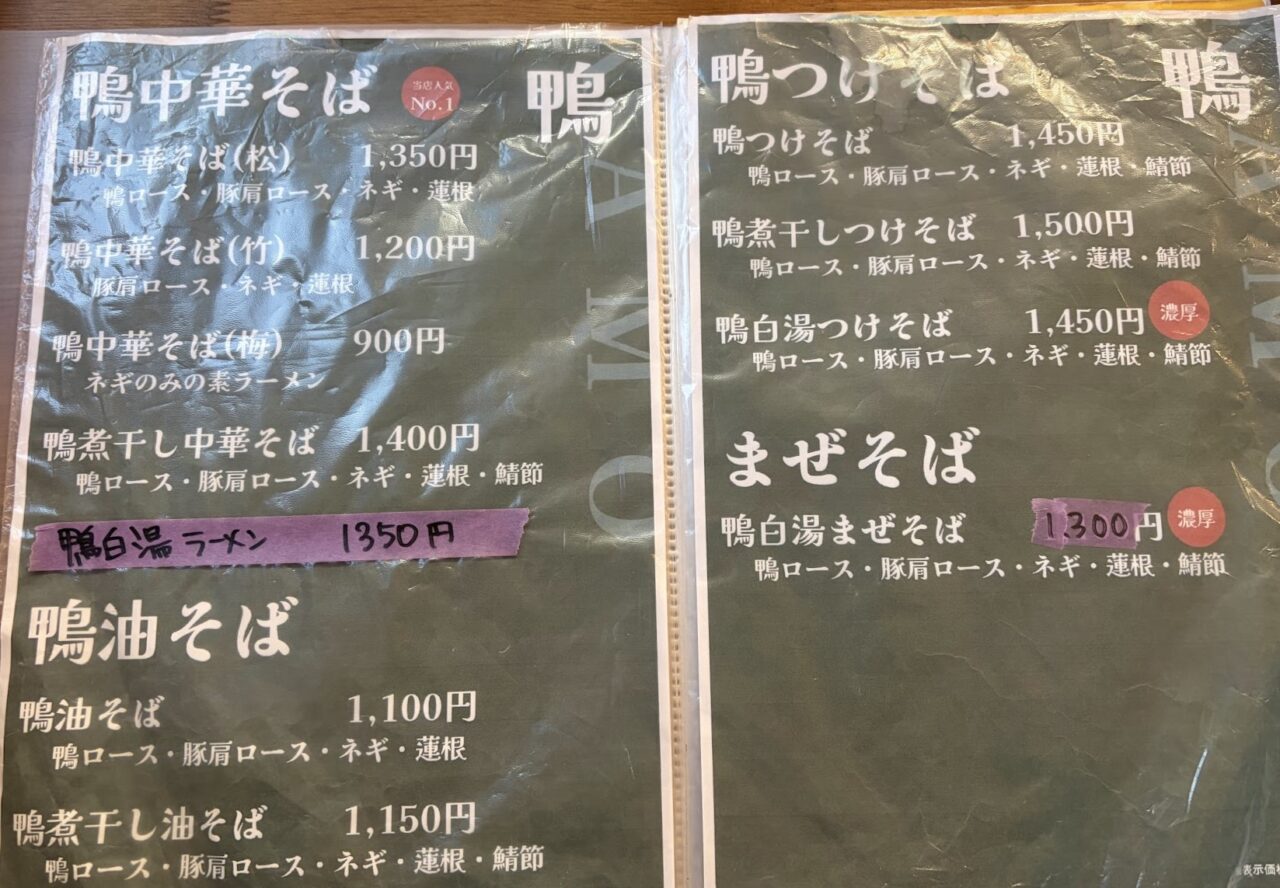 鴨中華そば 当店人気 No.1 鴨
鴨中華そば(松) 1,350円
鴨ロース・豚肩ロース・ネギ・蓮根
鴨中華そば(竹) 1,200円
豚肩ロース・ネギ・蓮根
鴨中華そば(梅) 900円
ネギのみの素ラーメン
鴨煮干し中華そば 1,400円
鴨ロース・豚肩ロース・ネギ・蓮根・鯖節
鴨白湯ラーメン 1350円
鴨油そば
鴨油そば 1,100円
鴨ロース・豚肩ロース・ネギ・蓮根
鴨煮干し油そば 1,150円
鴨ロース・豚肩ロース・ネギ・蓮根・鯖節
KAMO
鴨つけそば 鴨
鴨つけそば 1,450円
鴨ロース・豚肩ロース・ネギ・蓮根・鯖節
鴨煮干しつけそば 1,500円
鴨ロース・豚肩ロース・ネギ・蓮根・鯖節
鴨白湯つけそば 1,450円 濃厚
鴨ロース・豚肩ロース・ネギ・蓮根・鯖節
まぜそば
鴨白湯まぜそば 1.300円 濃厚
鴨ロース・豚肩ロース・ネギ・蓮根・鯖節
AMO
※表示価格